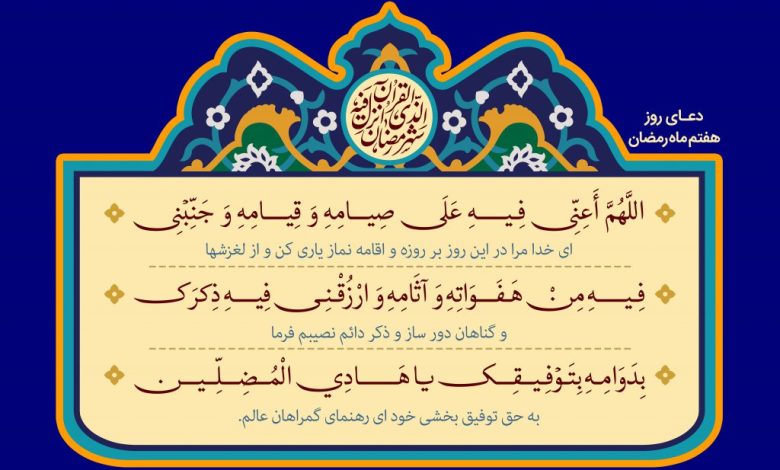 شهر رمضان الذی انزل فیه القرآن
دعـای روز
هفتم ماه رمضان
اللَّهُمَّ أَعِنِّی فِیهِ عَلَی صِیامِهِ وَ قِیامِهِ وَ جَنِّبْنِی
ای خدا مرا در این روز بر روزه و اقامه نماز یاری کن و از لغزشها
فِیهِ مِنْ هَفَوَاتِهِ وَ آثَامِهِ وَ ارْزُقْنِی فِیهِ ذِکرَک
و گناهان دور ساز و ذکر دائم نصیبم فرما
بِدَوَامِهِ بِتَوْفِیقِک یا هَادِي الْمُضِلِّین
به حق توفیق بخشی خود ای رهنمای گمراهان عالم.